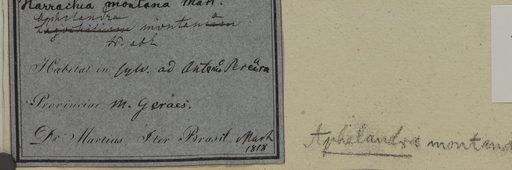 Harrachia montana Mart.
Aphelandra
montana
N. ab E.
Habitat in sylv. ad Antonio Pereira
Provinciae M. Geraës.
Dr. Martius Iter Brasil. Mart
1818
Aphelandra montana